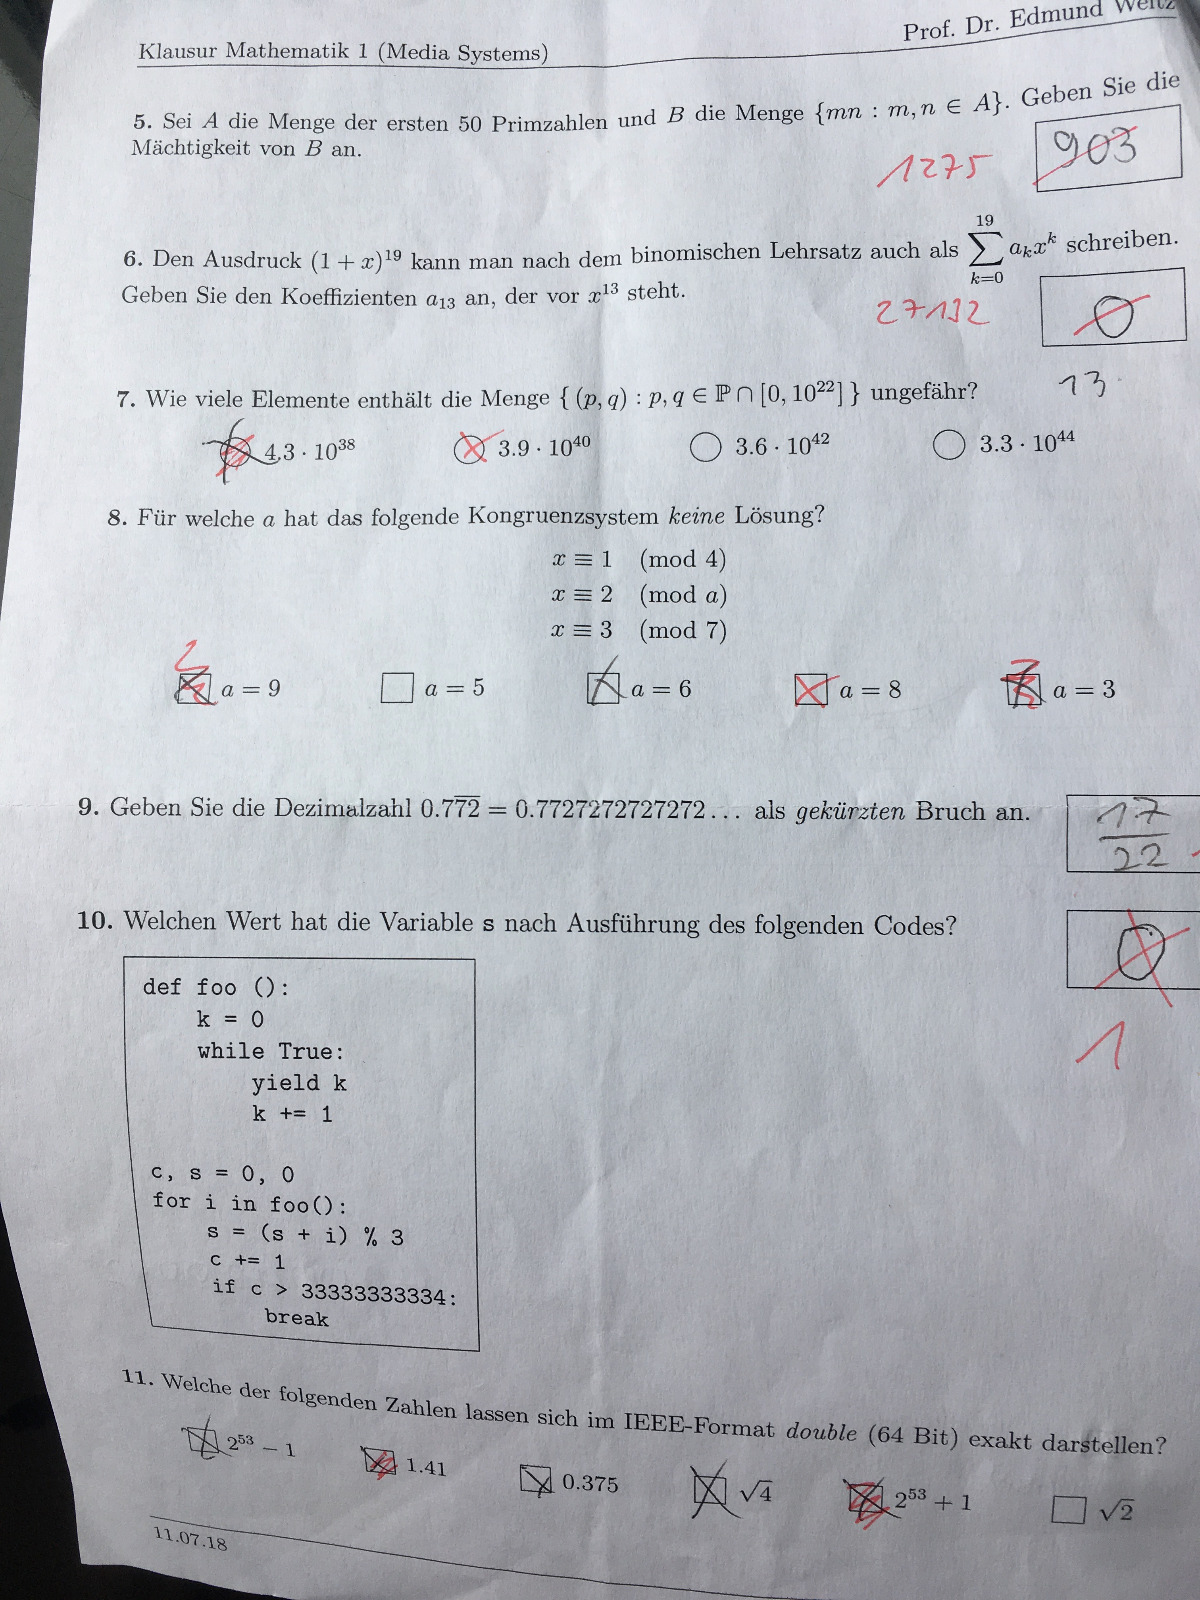 Klausur Mathematik 1 (Media Systems)
Prof. Dr. Edmund Weitz
5. Sei A die Menge der ersten 50 Primzahlen und B die Menge {mn : m, n ∈ A}. Geben Sie die
Mächtigkeit von B an.
903
1275
6. Den Ausdruck (1 + x)¹⁹ kann man nach dem binomischen Lehrsatz auch als ∑_{k=0}^{19} aₖxᵏ schreiben.
Geben Sie den Koeffizienten a₁₃ an, der vor x¹³ steht.
27132
0
13
7. Wie viele Elemente enthält die Menge { (p, q) : p, q ∈ ℙ ∩ [0, 10²²] } ungefähr?
4.3 · 10³⁸ 3.9 · 10⁴⁰ 3.6 · 10⁴² 3.3 · 10⁴⁴
8. Für welche a hat das folgende Kongruenzsystem keine Lösung?
x ≡ 1 (mod 4)
x ≡ 2 (mod a)
x ≡ 3 (mod 7)
a = 9 a = 5 a = 6 a = 8 a = 3
9. Geben Sie die Dezimalzahl 0.77̅2̅ = 0.7727272727272... als gekürzten Bruch an.
17
22
10. Welchen Wert hat die Variable s nach Ausführung des folgenden Codes?
0
1
def foo ():
k = 0
while True:
yield k
k += 1
c, s = 0, 0
for i in foo():
s = (s + i) % 3
c += 1
if c > 33333333334:
break
11. Welche der folgenden Zahlen lassen sich im IEEE-Format double (64 Bit) exakt darstellen?
2⁵³ − 1 1.41 0.375 √4 2⁵³ + 1 √2
11.07.18